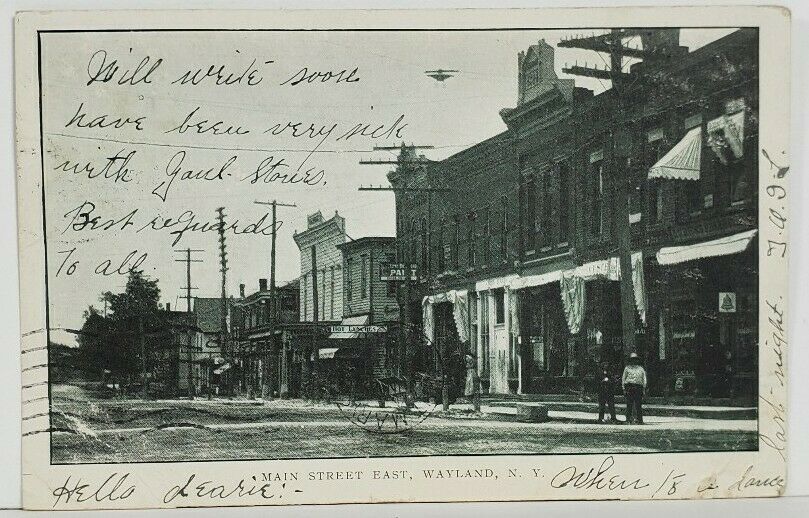 Will write soon
have been very sick
with Gaul-Stones.
Best regards
To all.
PAINT
HOT LUNCHES
MAIN STREET EAST, WAYLAND, N. Y.
Hello Dearie:-
When to a dance
last night.